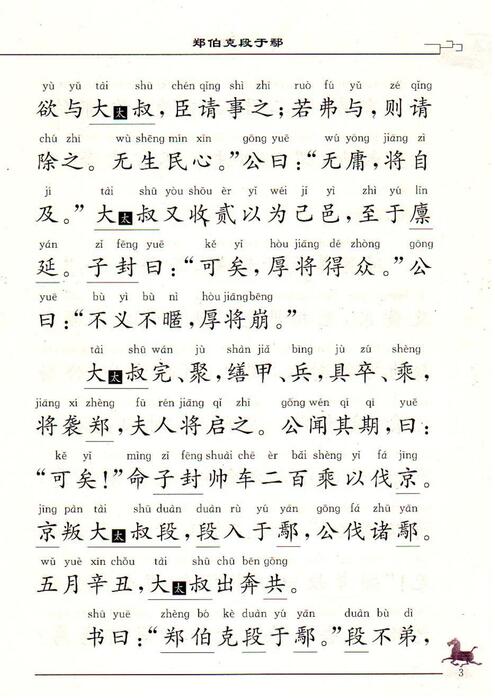 郑伯克段于鄢
yù yǔ tài shū chén qǐng shì zhī ruò fú yǔ zé qǐng
欲与大太叔，臣请事之；若弗与，则请
chú zhī wú shēng mín xīn gōng yuē wú yōng jiāng zì
除之。无生民心。”公曰：“无庸，将自
jí tài shū yòu shōu èr yǐ wéi jǐ yì zhì yú lǐn
及。”大太叔又收贰以为己邑，至于廪
yán zǐ fēng yuē kě yǐ hòu jiāng dé zhòng gōng
延。子封曰：“可矣，厚将得众。”公
yuē bù yì bù nì hòu jiāng bēng
曰：“不义不暱，厚将崩。”
tài shū wán jù shàn jiǎ bīng jù zú shèng
大太叔完、聚，缮甲、兵，具卒、乘，
jiāng xí zhèng fū rén jiāng qǐ zhī gōng wén qí qī yuē
将袭郑，夫人将启之。公闻其期，曰：
kě yǐ mìng zǐ fēng shuài chē èr bǎi shèng yǐ fá jīng
“可矣！”命子封帅车二百乘以伐京。
jīng pàn tài shū duàn duàn rù yú yān gōng fá zhū yān
京叛大太叔段，段入于鄢，公伐诸鄢。
wǔ yuè xīn chǒu tài shū chū bēn gōng
五月辛丑，大太叔出奔共。
shū yuē zhèng bó kè duàn yú yān duàn bù dì
书曰：“郑伯克段于鄢。”段不弟，
3